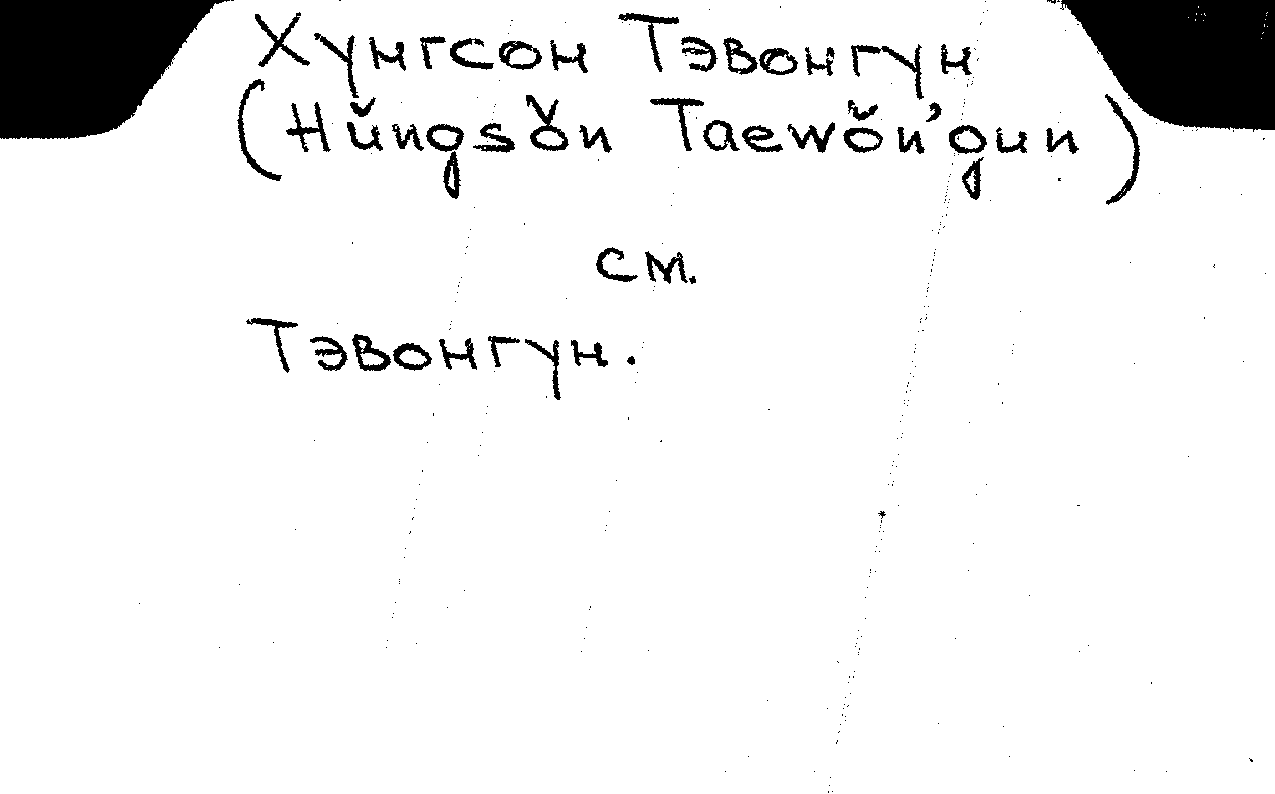 Хунгсон Тэвонгун
(Hŭngsŏn Taewŏn'gun)
см.
Тэвонгун.